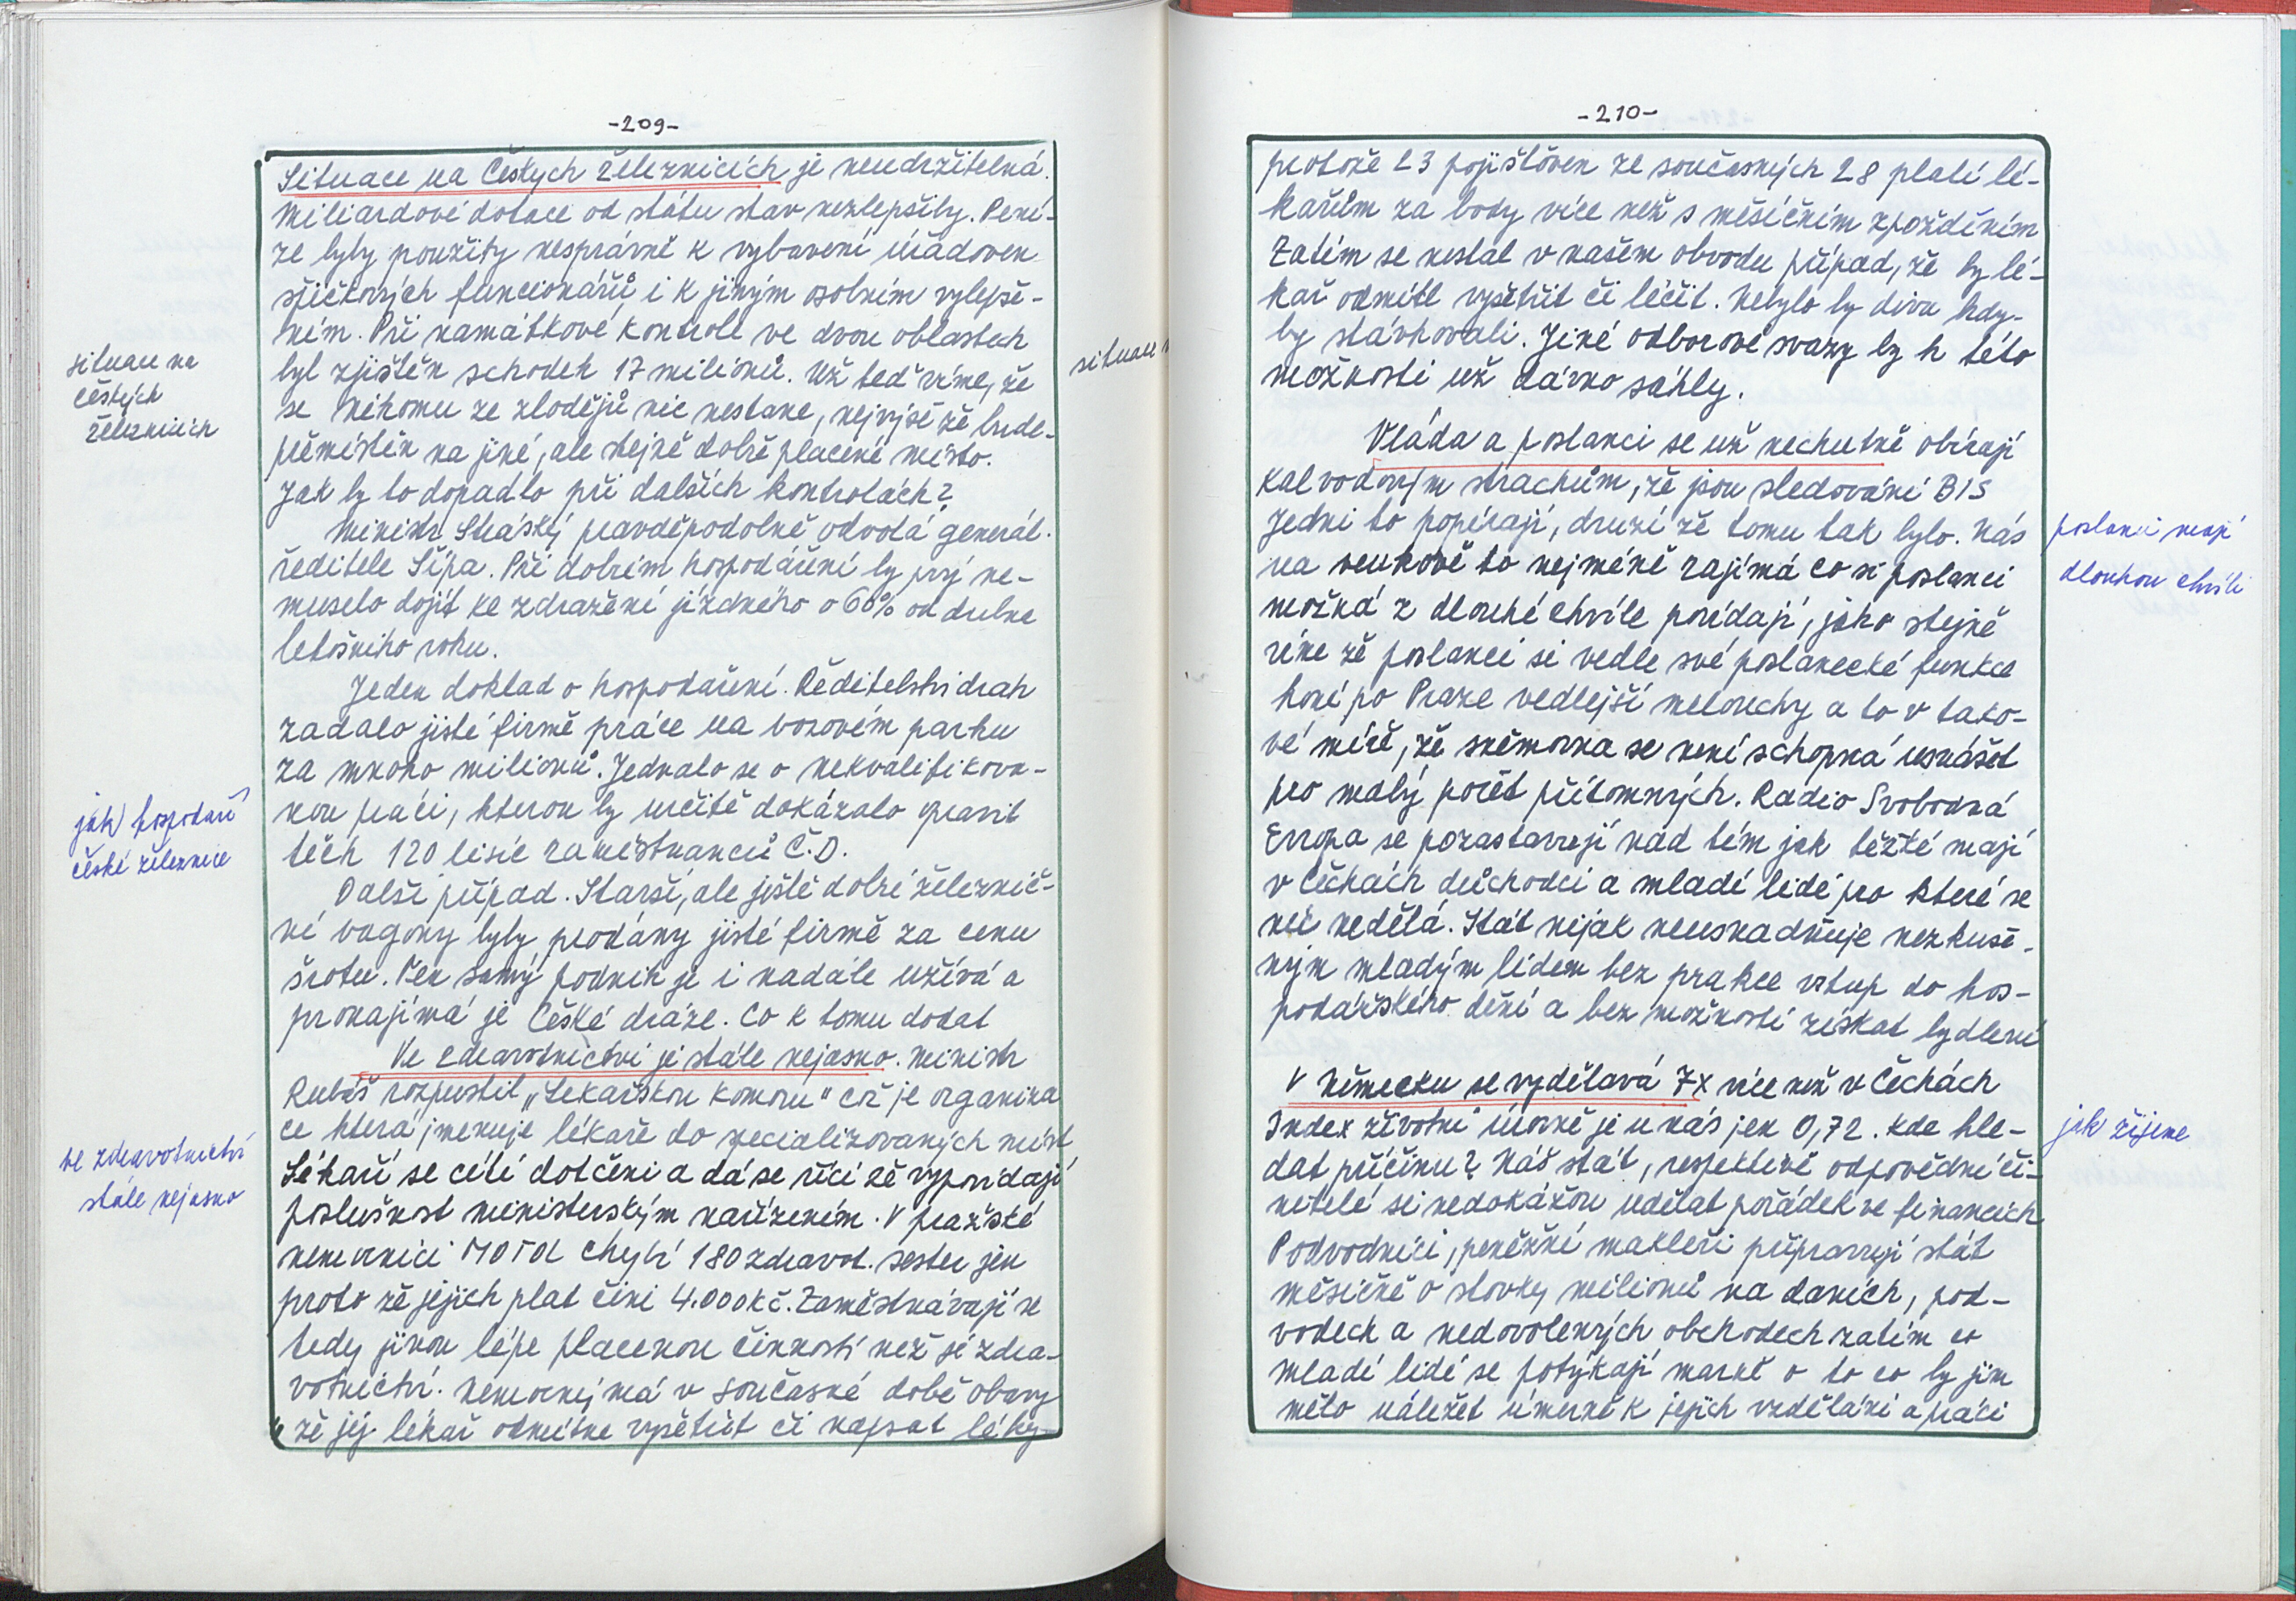 -209-
Situace na Českých železnicích je neudržitelná.
Miliardové dotace od státu stav nezlepšily. Pení-
ze byly použity nesprávně k vybavení úřadoven
špičkových funcionářů i k jiným osobním vylepše-
ním. Při namátkové kontrole ve dvou oblastech
byl zjištěn schodek 17 milionů. Už teď víme, že
se nikomu ze zlodějů nic nestane, nejvýše že bude
přemístěn na jiné, ale stejně dobře placené místo.
Jak by to dopadlo při dalších kontrolách?
Ministr Stráský pravděpodobně odvolá generál.
ředitele Šípa. Při dobrém hospodáření by prý ne-
muselo dojít ke zdražení jízdného o 60% od dubna
letošního roku.
Jeden doklad o hospodaření. Ředitelství drah
zadalo jisté firmě práce na vozovém parku
za mnoho milionů. Jednalo se o nekvalifikova-
nou práci, kterou by určitě dokázalo opravit
těch 120 tisíc zaměstnanců Č.D.
Další případ. Starší, ale ještě dobré železnič-
ní vagony byly prodány jisté firmě za cenu
šrotu. Ten samý podnik je i nadále užívá a
pronajímá je České dráze. Co k tomu dodat
Ve zdravotnictví je stále nejasno. Ministr
Rubáš rozpustil „Lékařskou komoru" což je organiza
ce která jmenuje lékaře do specializovaných míst
Lékaři se cítí dotčeni a dá se říci že vypovídají
poslušnost ministerským nařízením. V pražské
nemocnici MOTOL chybí 180 zdravot. sester jen
proto že jejich plat činí 4.000 kč. Zaměstnávají se
tedy jinou lépe placenou činností než je zdra-
votnictví. Nemocný má v současné době obavy
že jej lékař odmítne vyšetřit či napsat léky-
situace na
českých
železnicích
jak hospodaří
české železnice
ve zdravotnictví
stále nejasno
situace
-210-
protože 23 pojišťoven ze současných 28 platí lé-
kařům za body více než s měsíčním zpožděním
Zatím se nestal v našem obvodu případ, že by lé-
kař odmítl vyšetřit či léčit. Nebylo by divu kdy-
by stávkovali. Jiné odborové svazy by k této
možnosti už dávno sáhly.
Vláda a poslanci se už nechutně obírají
Kalvodovým strachům, že jsou sledováni BIS
Jedni to popírají, druzí že tomu tak bylo. Nás
na venkově to nejméně zajímá co si poslanci
možná z dlouhé chvíle povídají, jako stejně
víme že poslanci si vedle své poslanecké funkce
honí po Praze vedlejší melouchy a to v tako-
vé míře, že sněmovna se není schopná usnášet
pro malý počet přítomných. Radio Svobodná
Evropa se pozastavují nad tím jak těžké mají
v Čechách důchodci a mladí lidé pro které se
nic nedělá. Stát nijak neusnadňuje nezkuše-
ným mladým lidem bez prakce vstup do hos-
podářského dění a bez možnosti získat bydlení
V Německu se vydělává 7x více než v Čechách
Index životní úrovně je u nás jen 0,72. Kde hle-
dat příčinu? Náš stát, respektivě odpovědní či-
nitelé si nedokážou udělat pořádek ve financích
Podvodníci, peněžní makléři připravují stát
měsíčně o stovky milionů na daních, pod-
vodech a nedovolených obchodech zatím co
mladí lidé se potýkají marně o to co by jim
mělo náležet úměrně k jejich vzdělání a práci
poslanci mají
dlouhou chvíli
jak žijeme